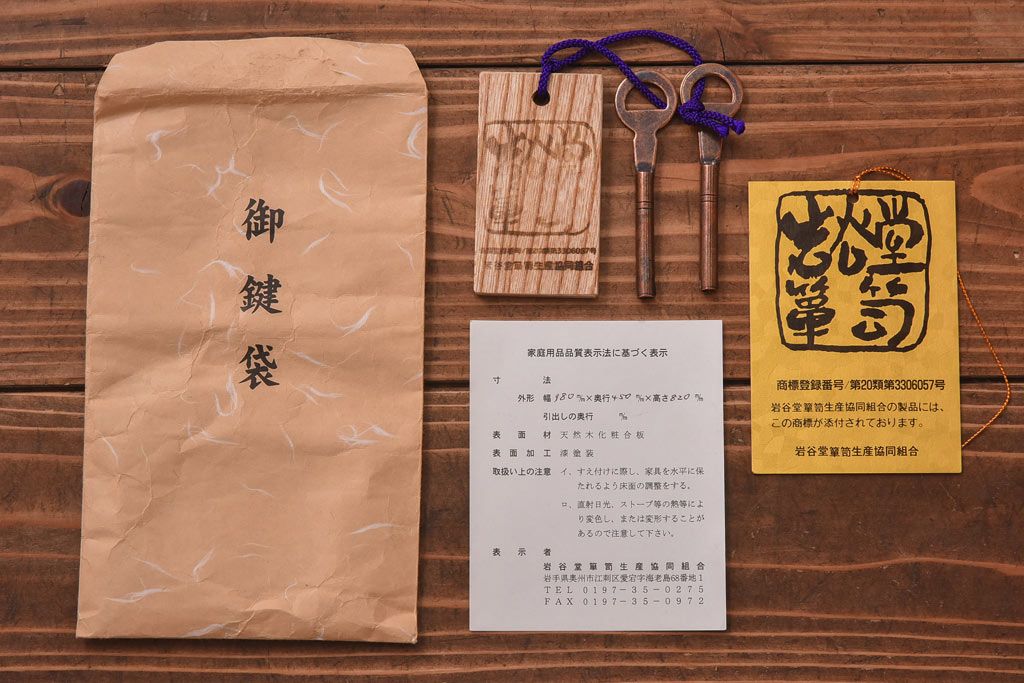 御鍵袋
岩谷堂簞笥
岩谷堂簞笥生産協同組合
家庭用品品質表示法に基づく表示
寸法
外形 幅980㎜×奥行450㎜×高さ820㎜
引出しの奥行 ㎜
表面材 天然木化粧合板
表面加工 漆塗装
取扱い上の注意 イ、すえ付けに際し、家具を水平に保
たれるよう床面の調整をする。
ロ、直射日光、ストーブ等の熱等によ
り変色し、または変形することが
あるので注意して下さい。
表示者
岩谷堂簞笥生産協同組合
岩手県奥州市江刺区愛宕字海老島68番地1
TEL 0197-35-0275
FAX 0197-35-0972
岩谷堂簞笥
商標登録番号/第20類第3306057号
岩谷堂簞笥生産協同組合の製品には、
この商標が添付されております。
岩谷堂簞笥生産協同組合